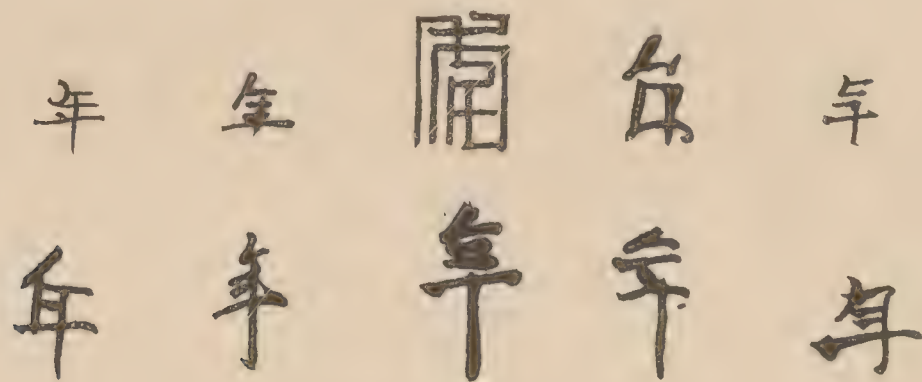 年 年 年 年
年 年 年 年 年